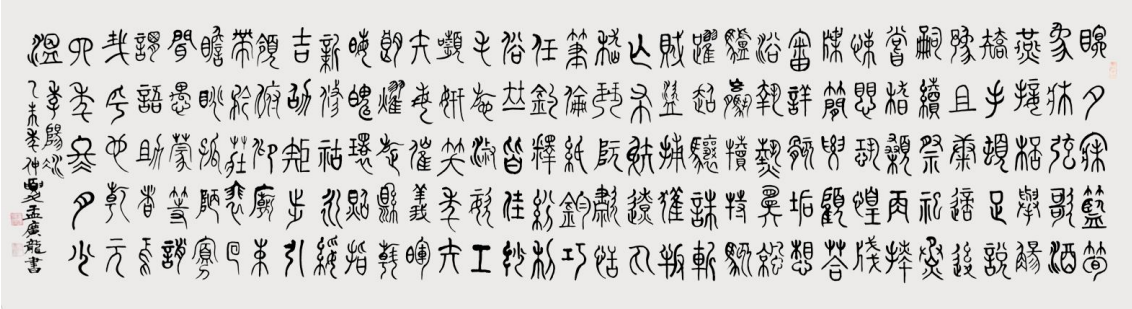 眠夕寐籃筍
象床弦歌酒
燕接桮舉觴
矯手頓足說
豫且康適後
嗣續祭祀烝
嘗稽顙再拜
悚懼恐惶牋
牒簡要顧荅
審詳骸垢想
浴執熱冀涼
驢騾犢特駭
躍超驤誅斬
賊盜捕獲叛
亾布射遼丸
嵇琴阮嘯恬
筆倫紙鈞巧
任釣釋紛利
俗竝皆佳妙
毛施淑姿工
顰妍笑年矢
矢每催義暉
朗燿旋縣斡
晦魄環照指
新修祜永綏
吉劭矩步引
領俯仰廟束
帶矜莊裴回
瞻眺孤陋寡
聞愚蒙等誚
謂語助者焉
哉乎也乾元
四年叁月少
溫李陽冰
乙未年仲夏孟廣龍書